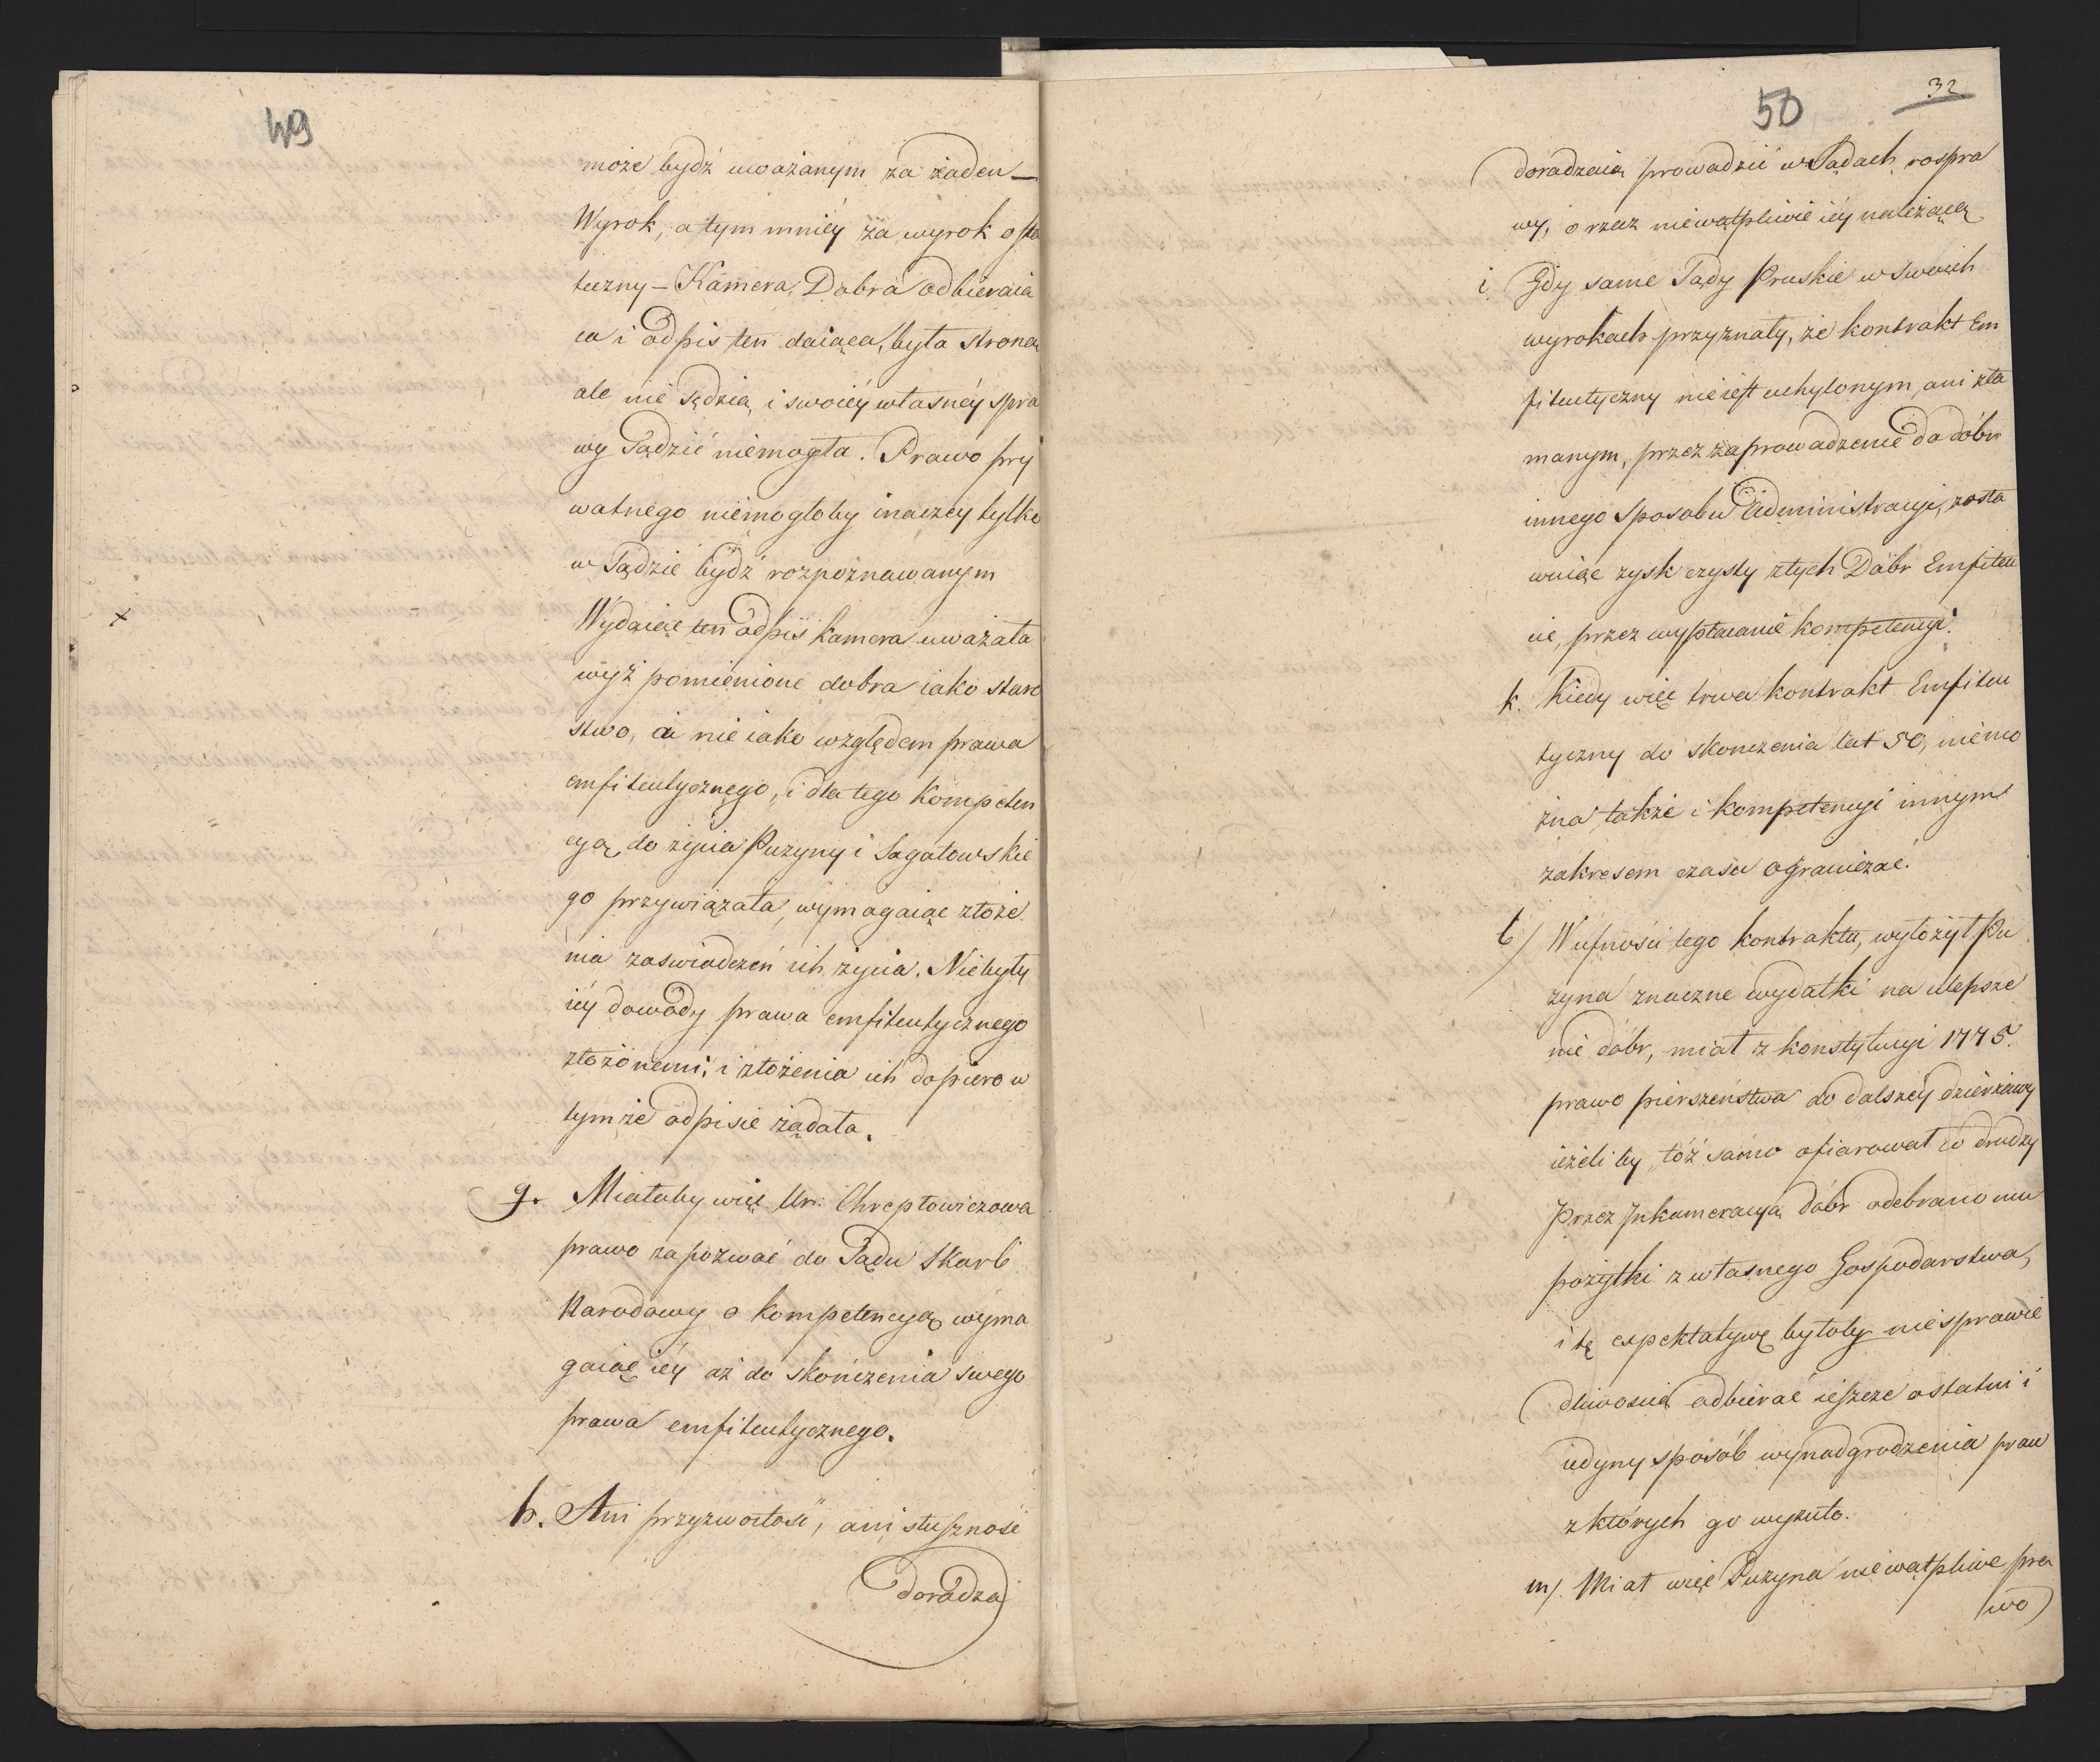 49
może bydź uważanym za żaden –
Wyrok, a tym mniéy za wyrok osta
teczny – Kamera Dobra odbieraią
ca i odpis ten daiąca, była stroną
ale nie Sędzią, i swoiéy własnéy spra
wy Sądzić niemogła. Prawo pry
watnego niemogłoby inaczéy tylko
w Sądzie bydź rozpoznawanym
x
Wydaiąc ten odpis Kamera uważała
wyż pomienione dobra iako staro
stwo, a nie iako względem prawa
emfiteutycznego, i dla tego Kompeten
cyą do życia Puzyny i Sagatowskie
go przywiązała, wymagaiąc złoże
nia zaświadczeń ich życia. Niebyły
iéy dowody prawa emfiteutycznego
złożonemi; i złożenia ich dopiero w
tymże odpisie żądała.
g. Miałaby więc Ur: Chreptowiczowa
prawo zapozwać do Sądu Skarb
Narodowy o kompetencyą wyma
gaiąc iéy aż do skończenia swego
prawa emfiteutycznego.
h. Ani przyzwoitość, ani słuszność
doradza
50
32
doradzaią prowadzić w Sądach rospra
wy, o rzecz niewątpliwie iéy należącą
i. Gdy same Sądy Pruskie w swoich
wyrokach przyznały, że kontrakt Em
fiteutyczny nie iest uchylonym, ani zła
manym, przez zaprowadzenie do dóbr
innego sposobu Administracyi, zosta
wuiąc zysk czysty z tych Dóbr Emfiteu
cie, przez wypłacanie kompetencyi.
k. Kiedy więc trwa kontrakt Emfiteu
tyczny do skonczenia lat 50, niemo
żna także i kompetencyi innym
zakresem czasu ograniczać.
l) W ufności tego kontraktu, wyłożył Pu
zyna znaczne wydatki na ulepsze
nie dóbr, miał z konstytucyi 1775.
prawo pierszeństwa do dalszéy dzierżawy
ieżeli by tóż samo ofiarował co drudzy
Przez Inkameracyą dóbr odebrano mu
pożytki z własnego Gospodarstwa,
i tę expektatywę byłoby niesprawie
dliwością odbierać ieszcze ostatni i
iedyny sposób wynadgrodzenia praw
z których go wyzuto.
m). Miał więc Puzyna niewątpliwe pra
wo